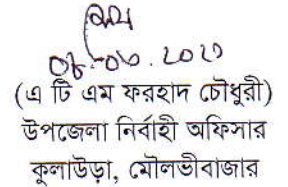 (এ টি এম ফরহাদ চৌধুরী)
উপজেলা নির্বাহী অফিসার
কুলাউড়া, মৌলভীবাজার